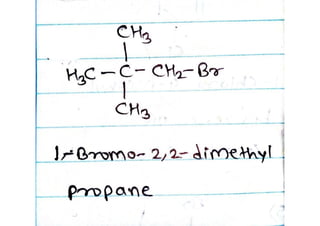 CH₃
H₃C – C – CH₂ – Br
CH₃
1-Bromo-2,2-dimethyl
propane